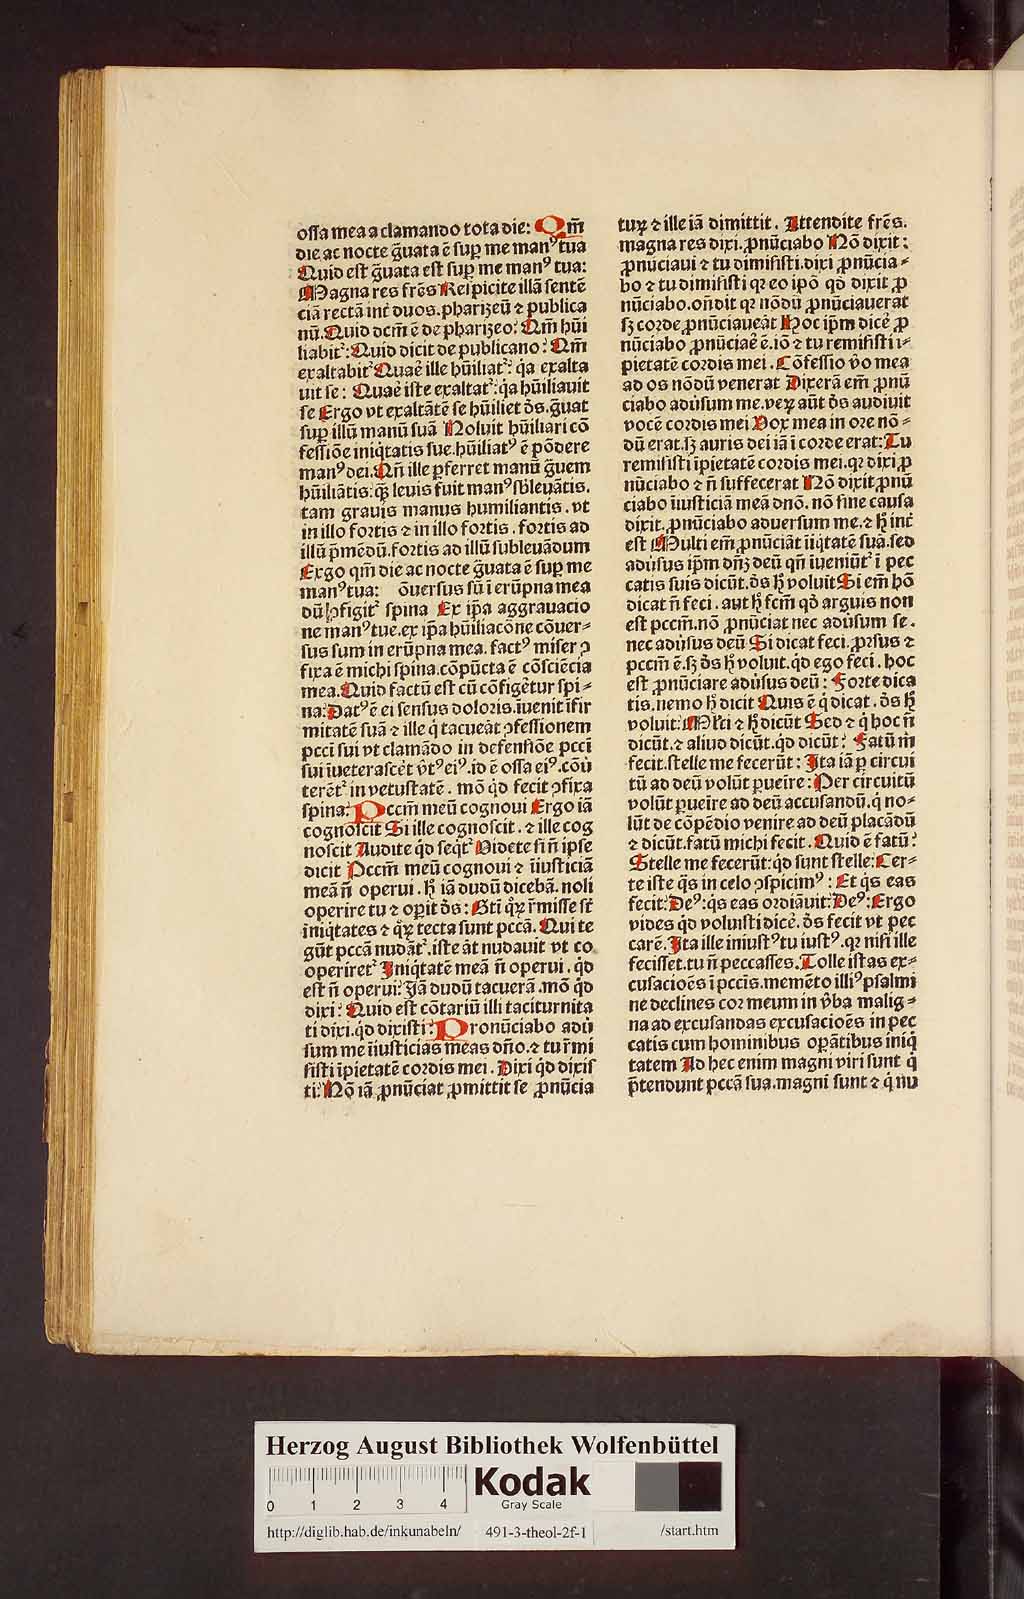 ossa mea a clamando tota die: Qm̃
die ac nocte g̃uata ē suꝑ me manꝰ tua
Quid est g̃uata est suꝑ me manꝰ tua:
Magna res frēs Respicite illā sentē
ciā rectā int̃ duos. pharizeū ⁊ publica
nū. Quid dcm̃ ē de pharizeo: Qm̃ hūi
liabit̃: Quid dicit de publicano: Qm̃
exaltabit̃ Quaẽ ille hūiliat̃: q̇a exalta
uit se: Quaẽ iste exaltat̃: q̇a hūiliauit
se Ergo vt exaltātē se hūiliet d̄s. g̃uat
suꝑ illū manū suā Noluit hūiliari cō
fessiōe iniq̇tatis sue. hūiliatꝰ ē pōdere
manꝰ dei. Qn̄ ille ꝑferret manū g̃uem
hūiliātis: qꝫ leuis fuit manꝰ sb̄leuātis.
tam grauis manus humiliantis. vt
in illo fortis ⁊ in illo fortis. fortis ad
illū p̄mēdū. fortis ad illū subleuādum
Ergo qm̃ die ac nocte g̃uata ē suꝑ me
manꝰ tua: ōuersus sū ī erūpna mea
dū ꝯfigit̃ spina Ex ip̄a aggrauacio
ne manꝰ tue. ex ip̄a hūiliacōne cōuer⸗
sus sum in erūpna mea. factꝰ miser ꝯ
fixa ē michi spina. cōpūcta ē cōsciēcia
mea. Quid factū est cū cōfigẽtur spi⸗
na: Datꝰ ē ei sensus doloris. īuenit īfir
mitatē suā ⁊ ille q̇ tacueat ꝯfessionem
pcci sui vt clamādo in defensiōe pcci
sui īueterascẽt vt̃ꝰ eiꝰ. id ē ossa eiꝰ. cōū
terēt̃ in vetustatē. mō q̇d fecit ꝯfixa
spina: Pccm̃ meū cognoui Ergo iā
cognoscit Si ille cognoscit. ⁊ ille cog
noscit Audite q̇d seqt̃ Videte si ñ ipse
dicit Pccm̃ meū cognoui ⁊ īiusticiā
meā ñ operui. h̄ iā dudū dicebā. noli
operire tu ⁊ oꝑit d̄s: Bti̇ qꝝ r̃misse st̃
iniq̇tates ⁊ qꝝ tecta sunt pccā. Qui te
gūt pccā nudāt̃. iste āt nudauit vt co
operiret̃ Iniq̇tatē meā ñ operui. q̇d
est ñ operui: Iā dudū tacuerā. mō q̇d
dixi: Quid est cōtariū illi taciturnita
ti dixi. q̇d dixisti: Pronūciabo adū
sum me īiusticias meas dño. ⁊ tu r̃mi
sisti īpietatē cordis mei. Dixi q̇d dixis
ti: Nō iā ꝓnūciat ꝓmittit se ꝓnūcia
tuꝝ ⁊ ille iā dimittit. Attendite frēs.
magna res dixi. ꝓnūciabo Nō dixit:
ꝓnūciaui ⁊ tu dimisisti. dixi ꝓnūcia⸗
bo ⁊ tu dimisisti qꝛ eo ipō qd̄ dixit ꝓ
nūciabo. oñdit qꝛ nōdū ꝓnūciauerat
sꝫ corde ꝓnūciaueat Hoc ip̄m dicẽ ꝓ
nūciabo ꝓnūciaẽ ē. iō ⁊ tu remisisti i⸗
pietatē cordis mei. Cōfessio v̊o mea
ad os nōdū venerat Dixerā em̄ ꝓnū
ciabo adūsum me. veꝝ aūt d̄s audiuit
vocē cordis mei Vox mea in ore nō⸗
dū erat. sꝫ auris dei iā ī corde erat: Tu
remisisti īpietatē cordis mei. qꝛ dixi ꝓ
nūciabo ⁊ ñ suffecerat Nō dixit ꝓnū
ciabo īiusticiā meā dnō. nō sine causa
dixit. ꝓnūciabo aduersum me. ⁊ h̄ int̃
est Multi em̄ ꝓnūciāt īiq̇tatē suā. sed
adūsus ip̄m dñꝫ deū qñ īueniūt̃ ī pec
catis suis dicūt. d̄s h̄ voluit Si em̄ hō
dicat ñ feci. aut h̄ fcm̄ qd̄ arguis non
est pccm̃. nō ꝓnūciat nec adūsum se.
nec adūsus deū Si dicat feci. ꝓrsus ⁊
pccm̃ ē. sꝫ d̄s h̄ voluit. q̇d ego feci. hoc
est ꝓnūciare adūsus deū: Forte dica
tis. nemo h̄ dicit Quis ē q̇ dicat. d̄s h̄
voluit: Mlti ⁊ h̄ dicūt Sed ⁊ q̇ hoc ñ
dicūt. ⁊ aliud dicūt. q̇d dicūt: Fatū m̄
fecit. stelle me fecerūt: Ita iā ꝑ circui
tū ad deū volūt ꝑueire: Per circuitū
volūt ꝑueire ad deū accusandū. q̇ no⸗
lūt de cōpēdio venire ad deū placādū
⁊ dicūt. fatū michi fecit. Quid ē fatū:
Stelle me fecerūt: q̇d sunt stelle: Cer⸗
te iste q̇s in celo ꝯspicimꝰ: Et q̇s eas
fecit: Deꝰ: q̇s eas ordiāuit: Deꝰ: Ergo
vides q̇d voluisti dicẽ. d̄s fecit vt pec
carē. Ita ille iniustꝰ tu iustꝰ. qꝛ nisi ille
fecisset. tu ñ peccasses. Tolle istas ex⸗
cusacioēs ī pccis. memēto illiꝰ psalmi
ne declines cor meum in v̄ba malig⸗
na ad excusandas excusacioēs in pec
catis cum hominibus oꝑātibus iniq̇
tatem Ad hec enim magni viri sunt q̇
p̄tendunt pccā sua. magni sunt ⁊ q̇ nu
Herzog August Bibliothek Wolfenbüttel
0 1 2 3 4
Kodak
Gray Scale
http://diglib.hab.de/inkunabeln/ 491-3-theol-2f-1 /start.htm